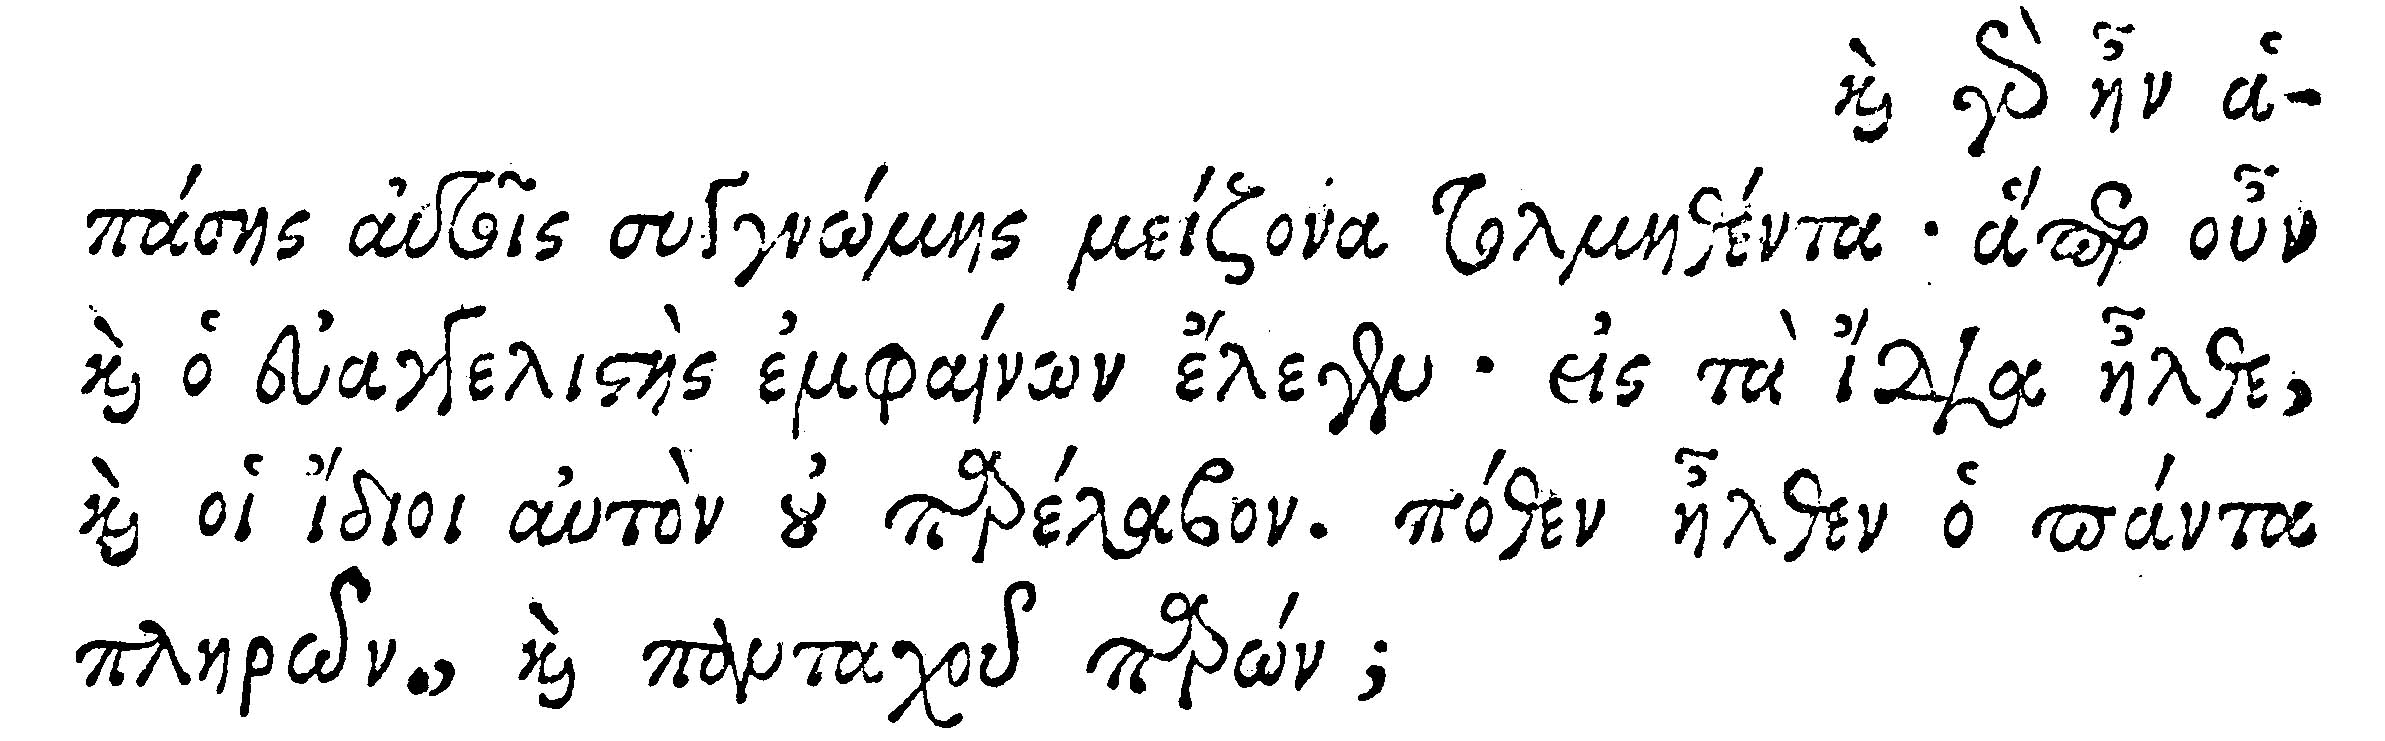 καὶ γὰρ ἦν ἁ-
πάσης αὐτοῖς συγγνώμης μείζονα τολμηθέντα · ἅπερ οὖν
καὶ ὁ εὐαγγελιστὴς ἐμφαίνων ἔλεγεν · εἰς τὰ ἴδια ἦλθε,
καὶ οἱ ἴδιοι αὐτὸν οὐ παρέλαβον. πόθεν ἦλθεν ὁ πάντα
πληρῶν., καὶ πανταχοῦ παρών ;